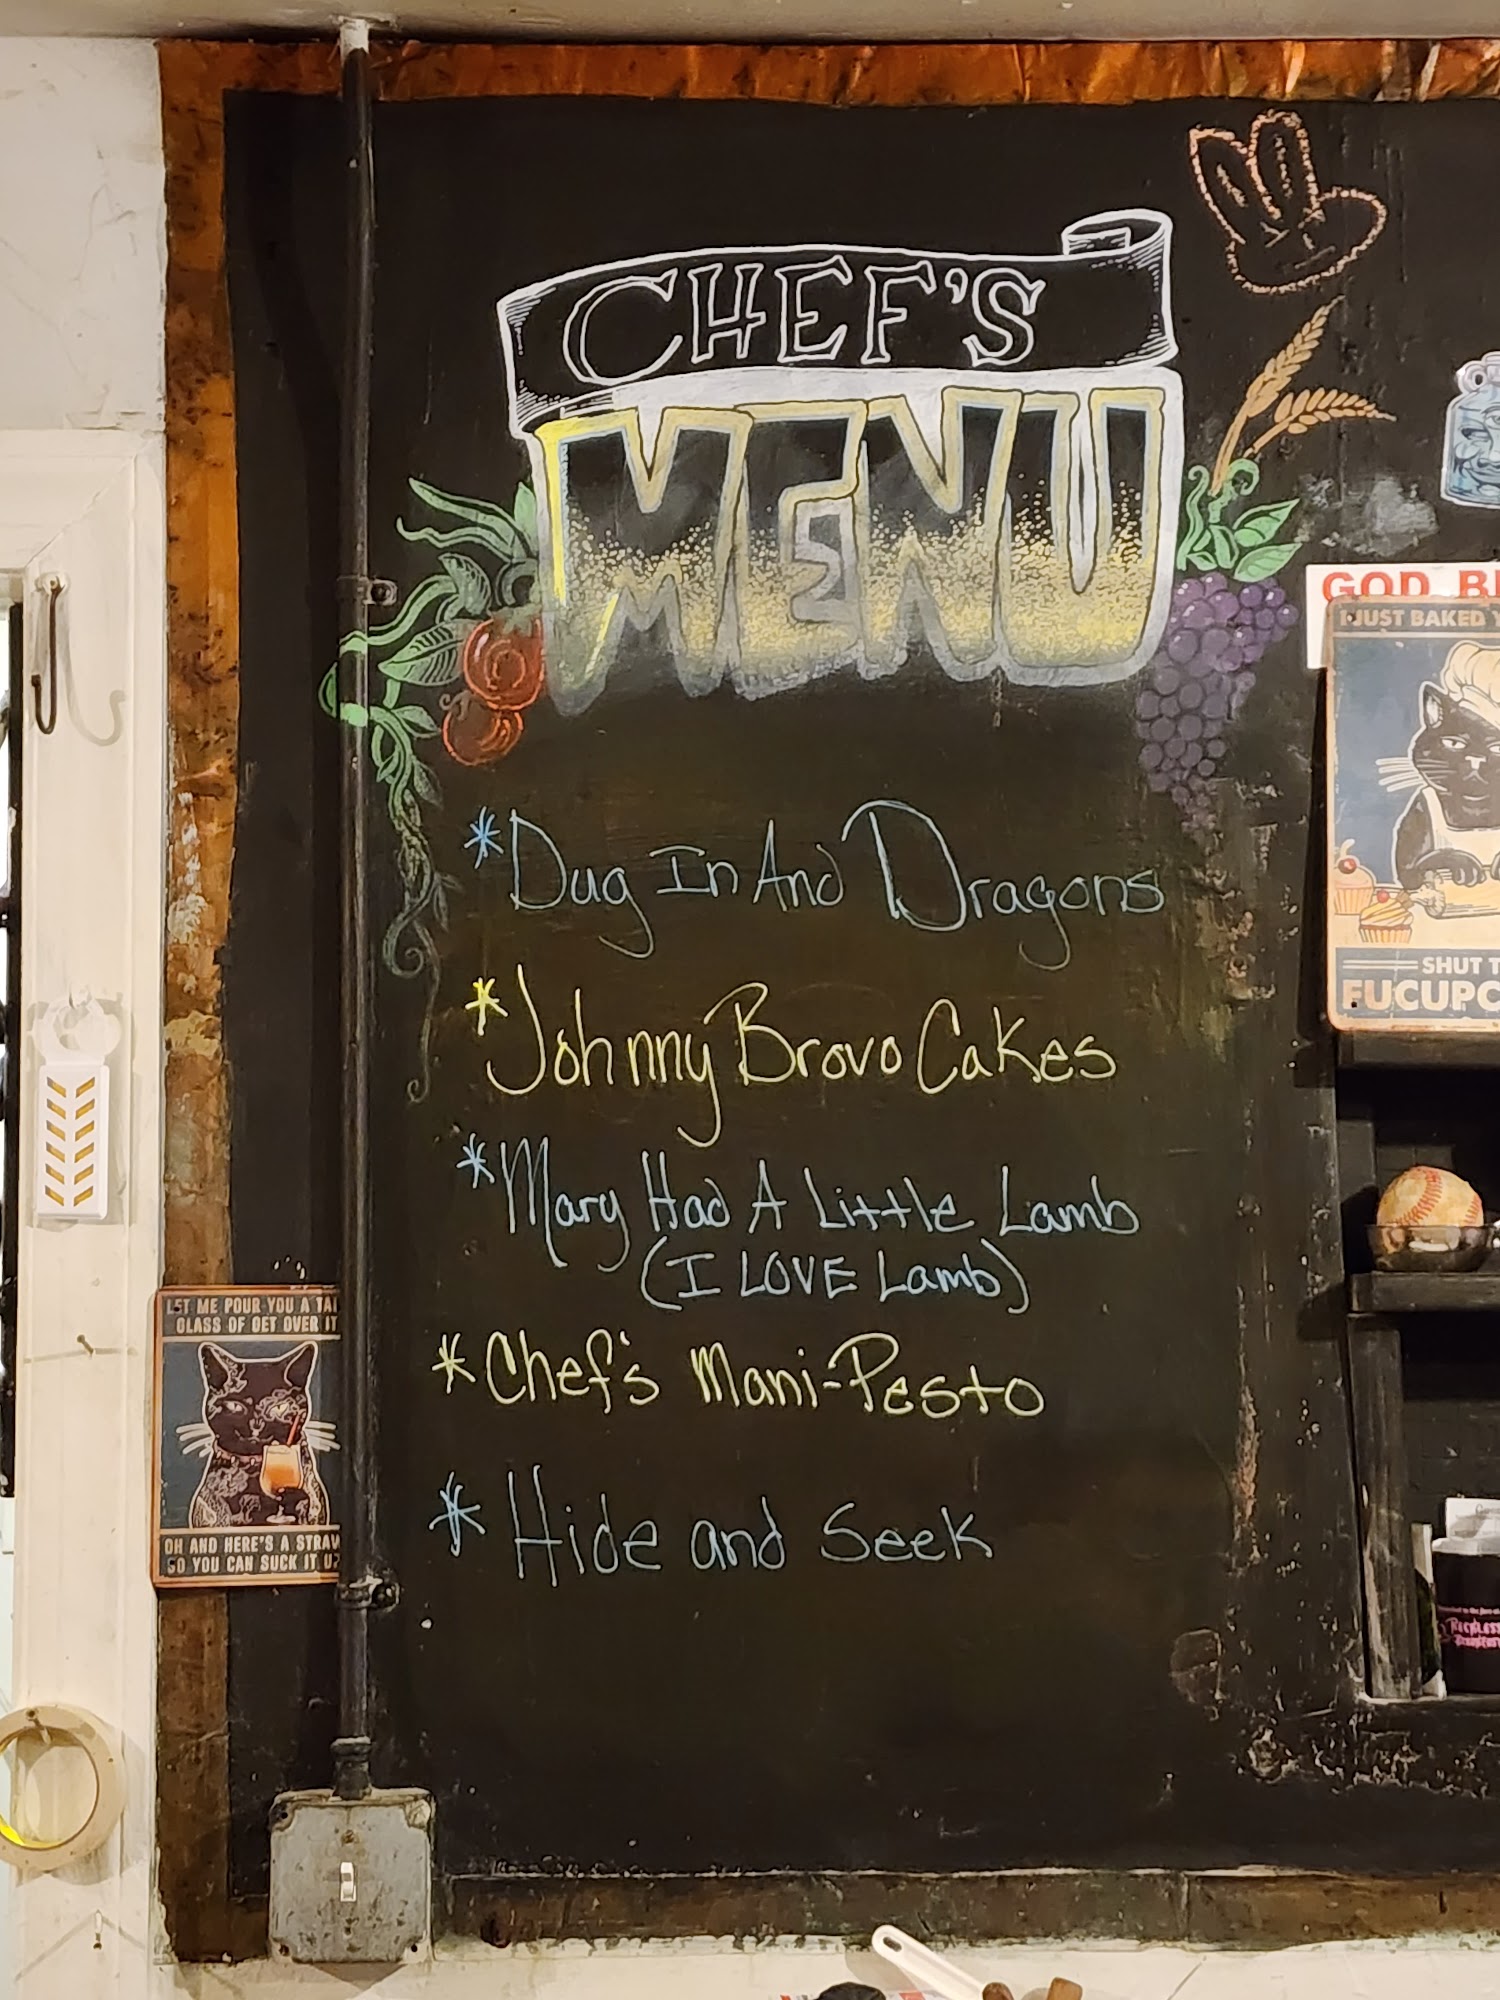 CHEF'S
MENU
*Dug In And Dragons
*Johnny Bravo Cakes
*Mary Had A Little Lamb
(I LOVE Lamb)
*Chef's Mani-Pesto
*Hide and Seek
GOD BL
I JUST BAKED
SHUT T
FUCUPC
LET ME POUR YOU A TAL
GLASS OF GET OVER IT
OH AND HERE'S A STRAW
SO YOU CAN SUCK IT UP
RECKLESS